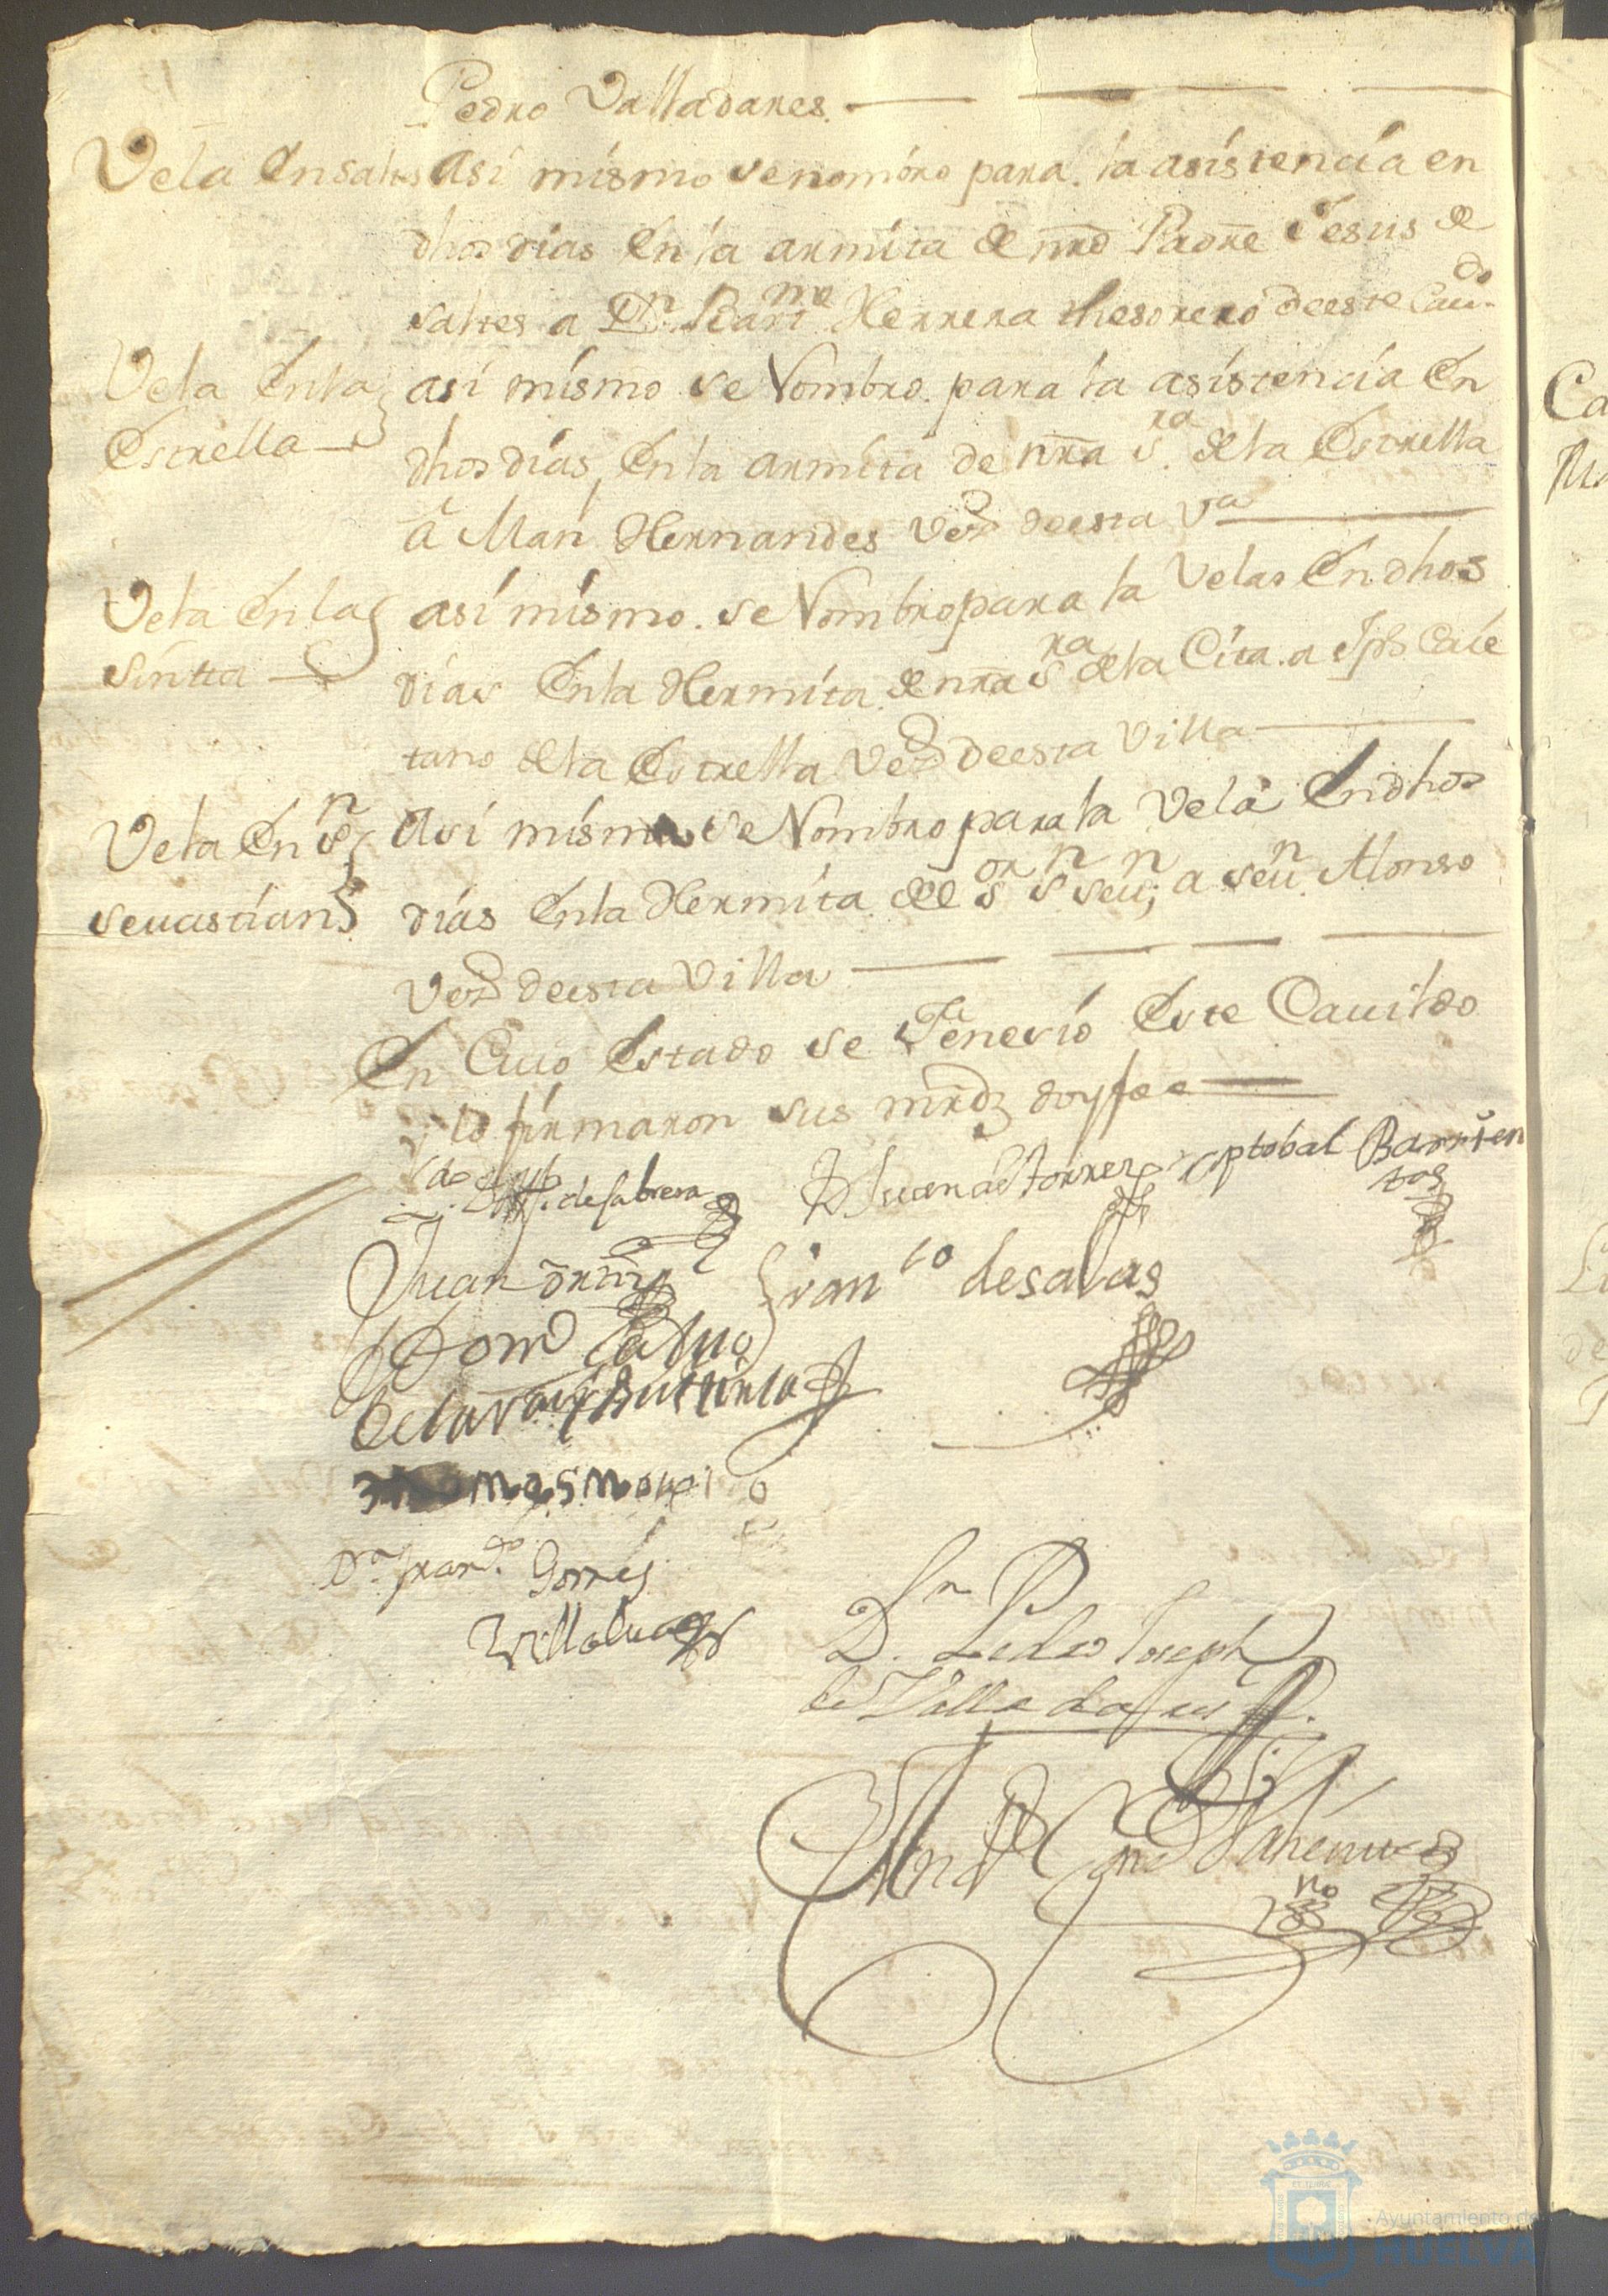 Pedro Valladares.
Vela En saltes
Asi mismo se nombro para. la asistencia en
dhos dias En la armita de nro Padre Jesus de
saltes a Dn. Barme Herrera thesorero de este Cavdo
Vela En la
Estrella
asi mismo se Nombro. para la asistencia En
dhos dias, En la armita de nra sra. de la Estrella
â Man Hernandes vez de esta va
Vela En la
Sintta
asi mismo. se Nombro para la Velas En dhos
dias En la Hermita de nra sra de la Cita. a Jph Caie
tano de la Estrella vez de esta Villa
Vela En sn
sevastian
Asi mismo se Nombro para la Vela En dhos
dias En la Hermita de sor sn sevn; a sevn Alonso
vez de esta Villa
En Cuio Estado se Feneсio Este Cavildo
i lo firmaron sus mrdz doy fee
de Cabrera
Dn Juan de torres
Xptobal Barrien
tos
Juan
Franco de salas
Dom Calvo
thomas
Dn Franco Gomes
Villalua
Dn Pedro Joseph
de Valladares
Ayuntamiento de
HUELVA